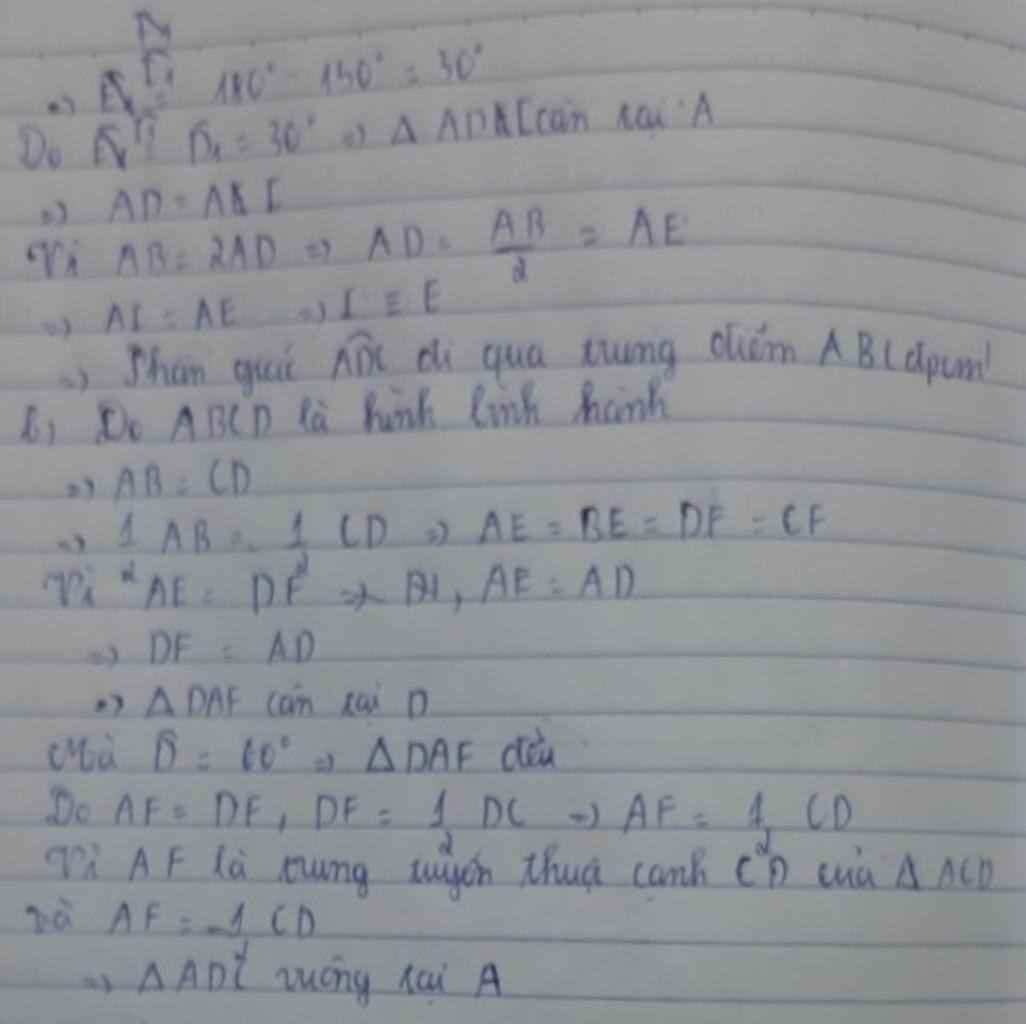 => Î₁ = 180° - 150° = 30°
Do Î₁ = D̂₁ = 30° => Δ ADI cân tại A
=> AD = AI
Vì AB = 2AD => AD = AB/2 = AE
=> AI = AE => I ≡ E
=> Phân giác ADC đi qua trung điểm AB (đpcm)
b) Do ABCD là hình bình hành
=> AB = CD
=> 1/2 AB = 1/2 CD => AE = BE = DF = CF
Vì AE = DF, AE = AD
=> DF = AD
=> Δ DAF cân tại D
Mà D̂ = 60° => Δ DAF đều
Do AF = DF, DF = 1/2 DC => AF = 1/2 CD
Vì AF là trung tuyến thuộc cạnh CD của Δ ACD
và AF = 1/2 CD
=> Δ ADC vuông tại A